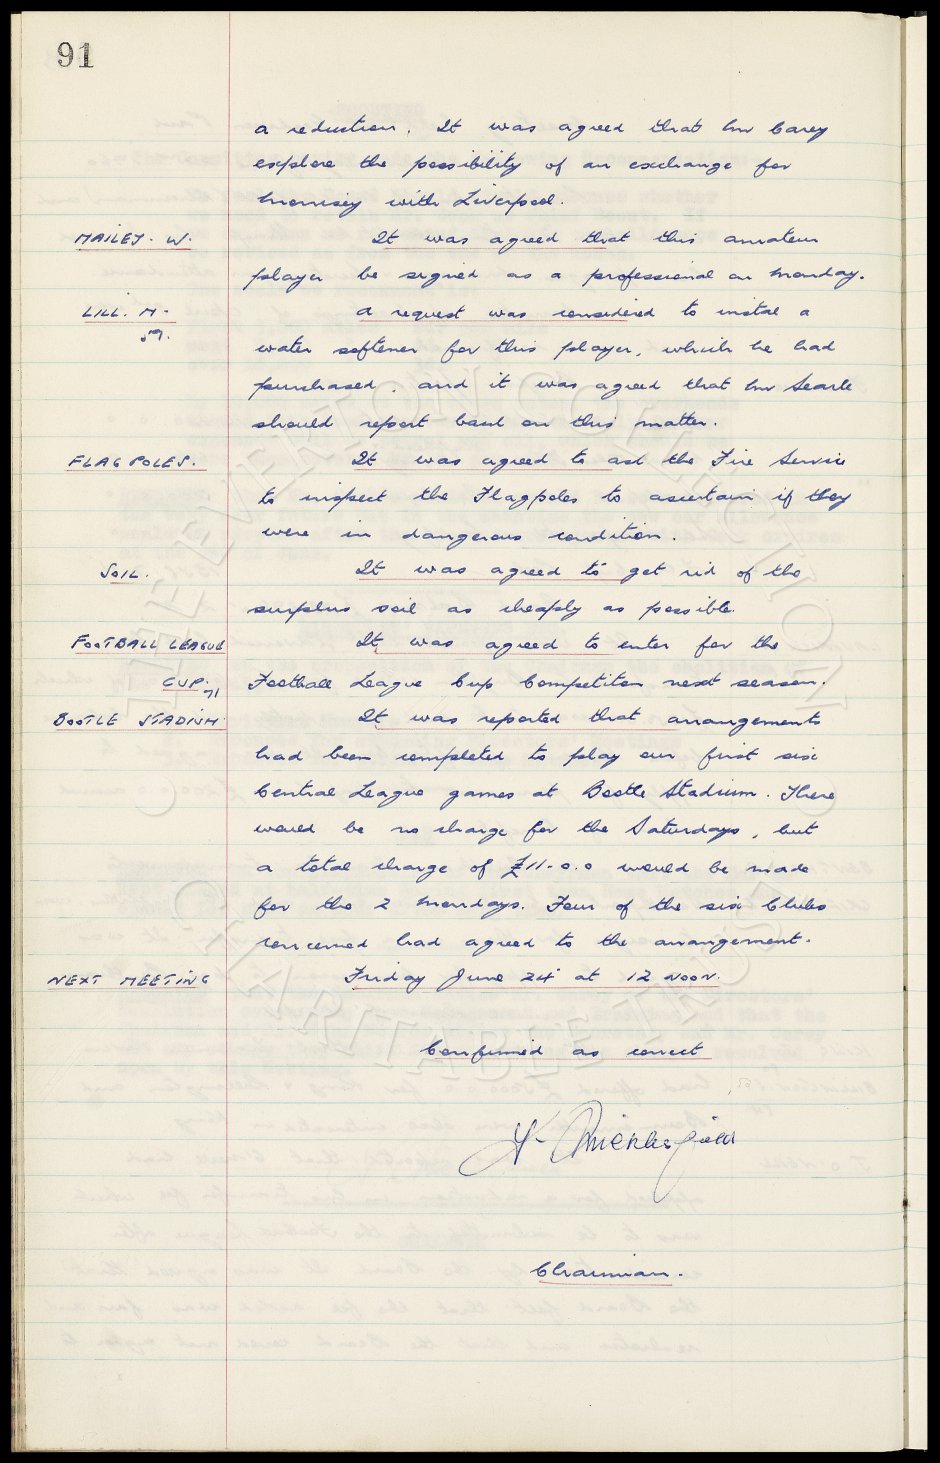 91
a reduction. It was agreed that Mr Carey
explore the possibility of an exchange for
Morrisey with Liverpool.
MAILEY. W. It was agreed that this amateur
player be signed as a professional on Monday.
LILL. M. A request was considered to instal a
59. water softener for this player, which he had
purchased, and it was agreed that Mr Searle
should report back on this matter.
FLAG POLES. It was agreed to ask the Fire Service
to inspect the Flagpoles to ascertain if they
were in dangerous condition.
SOIL. It was agreed to get rid of the
surplus soil as cheaply as possible.
FOOTBALL LEAGUE It was agreed to enter for the
CUP. 71 Football League Cup Competiton next season.
BOOTLE STADIUM It was reported that arrangements
had been completed to play our first six
Central League games at Bootle Stadium. There
would be no charge for the Saturdays, but
a total charge of £11-0.0 would be made
for the 2 Mondays. Four of the six Clubs
concerned had agreed to the arrangement.
NEXT MEETING Friday June 24 at 12 NOON.
Confirmed as correct
Chairman.
THE EVERTON COLLECTION
CHARITABLE TRUST